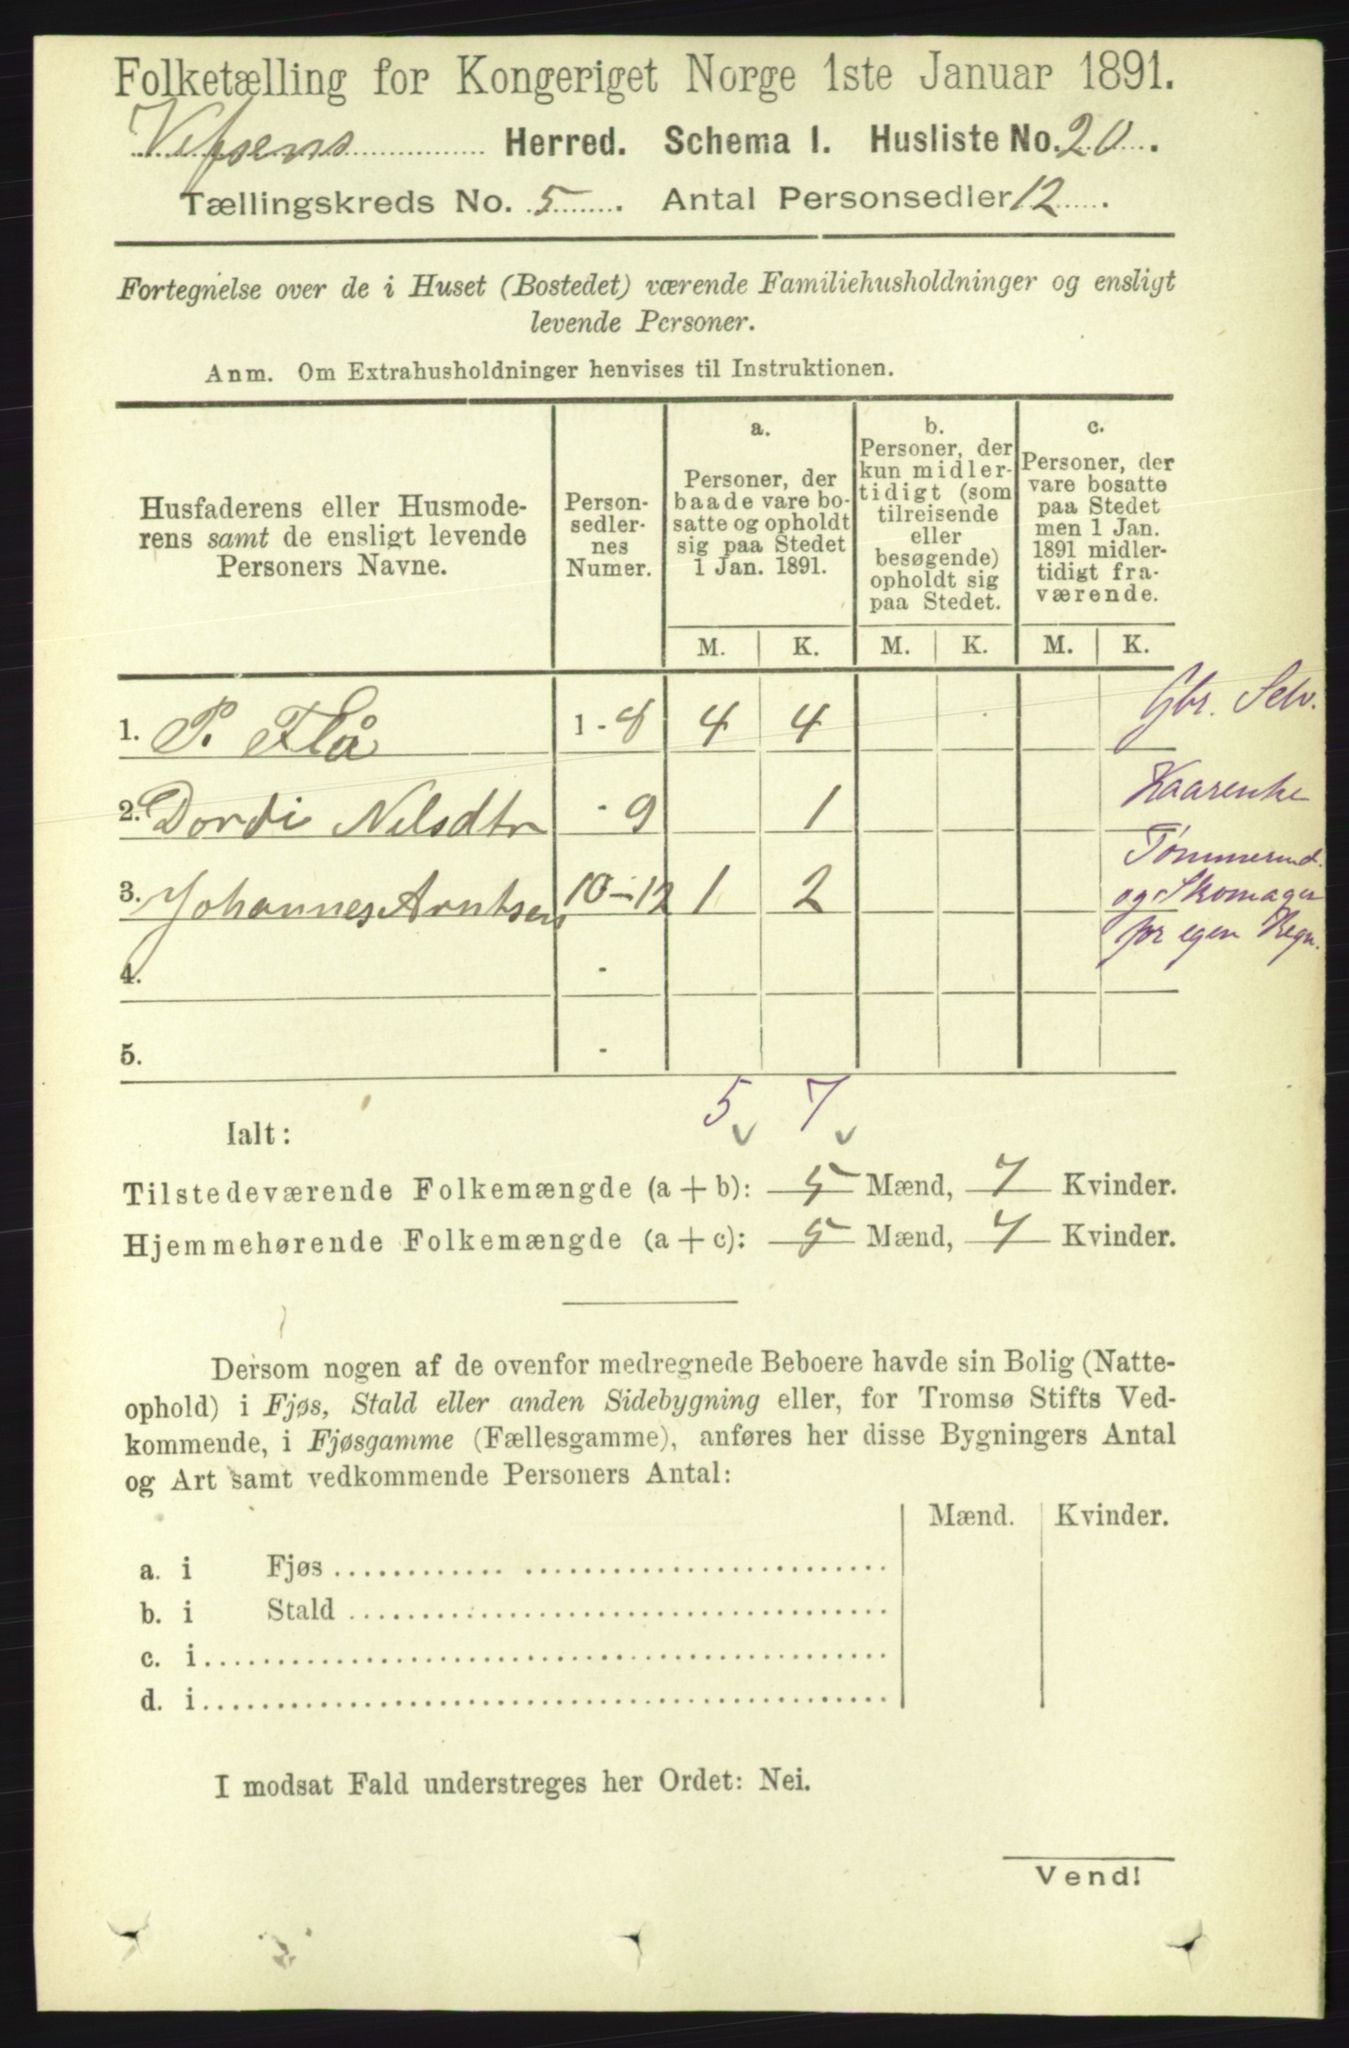 Folketælling for Kongeriget Norge 1ste Januar 1891.
Vefsens Herred. Schema I. Husliste No. 20.
Tællingskreds No. 5. Antal Personsedler 12.
Fortegnelse over de i Huset (Bostedet) værende Familiehusholdninger og ensligt
levende Personer.
Anm. Om Extrahusholdninger henvises til Instruktionen.
Husfaderens eller Husmode-
rens samt de ensligt levende
Personers Navne.
Person-
sedler-
nes
Numer.
a.
Personer, der
baade vare bo-
satte og opholdt
sig paa Stedet
1 Jan. 1891.
b.
Personer, der
kun midler-
tidigt (som
tilreisende
eller
besøgende)
opholdt sig
paa Stedet.
c.
Personer, der
vare bosatte
paa Stedet
men 1 Jan.
1891 midler-
tidigt fra-
værende.
M. K. M. K. M. K.
1. P. Flå 1 - 8 4 4 Gbr. Selv.
2. Dordi Nilsdtr - 9 1 Kaarenke
3. Johannes Arntsen 10 - 12 1 2 Tømmermd.
og Skomager
for egen Regn.
4. -
5. -
5 7
Ialt:
Tilstedeværende Folkemængde (a + b): 5 Mænd, 7 Kvinder.
Hjemmehørende Folkemængde (a + c): 5 Mænd, 7 Kvinder.
Dersom nogen af de ovenfor medregnede Beboere havde sin Bolig (Natte-
ophold) i Fjøs, Stald eller anden Sidebygning eller, for Tromsø Stifts Ved-
kommende, i Fjøsgamme (Fællesgamme), anføres her disse Bygningers Antal
og Art samt vedkommende Personers Antal:
Mænd. Kvinder.
a. i Fjøs
b. i Stald
c. i
d. i
I modsat Fald understreges her Ordet: Nei.
Vend!